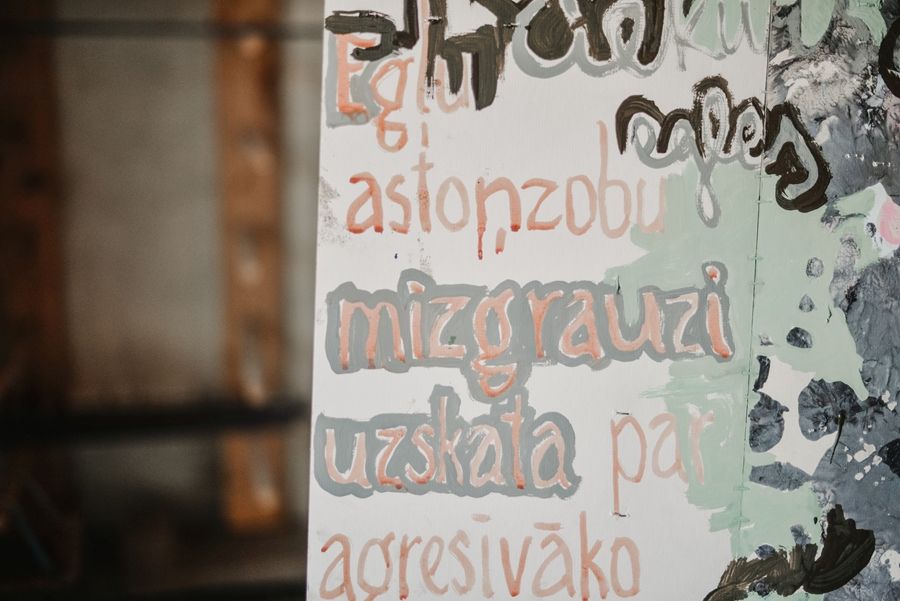 Egļu
astoņzobu
mizgrauzi
uzskata par
agresīvāko